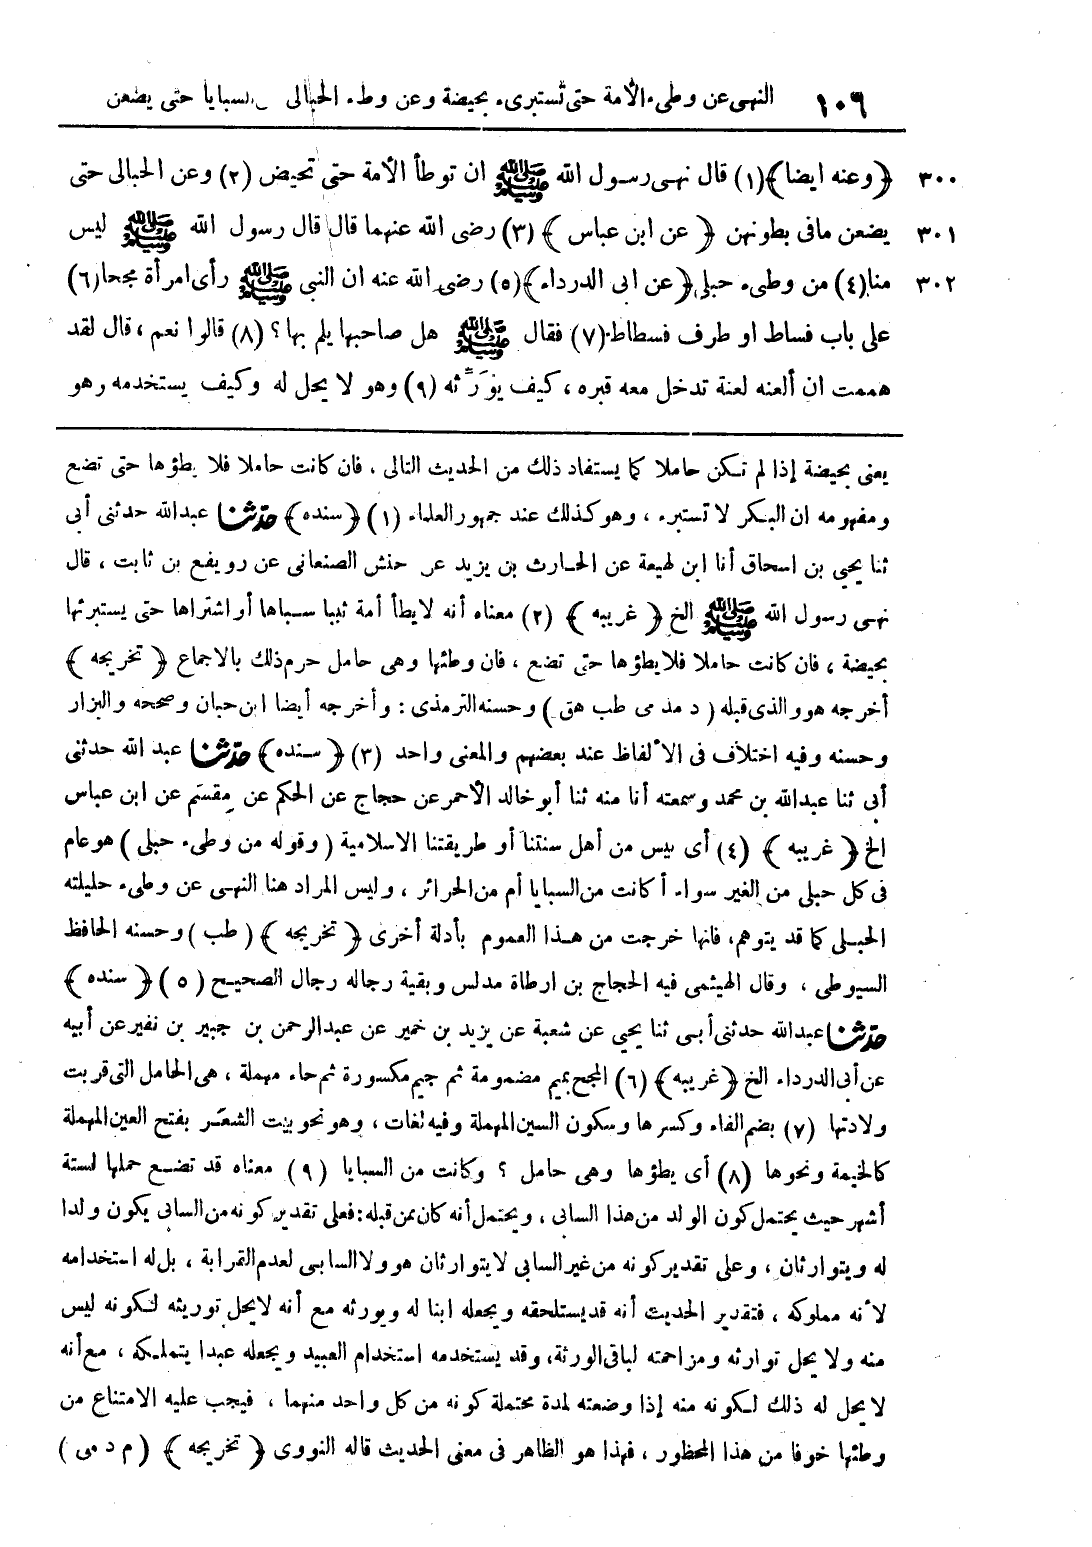 ١٠٦ النهى عن وطىء الأمة حتى تستبرىء بحيضة وعن وطء الحبالى السبايا حتى يضعن
٣٠٠ ﴿وعنه ايضا﴾(١) قال نهى رسول الله ﷺ ان توطأ الأمة حتى تحيض (٢) وعن الحبالى حتى
٣٠١ يضعن مافى بطونهن ﴿عن ابن عباس﴾ (٣) رضى الله عنهما قال قال رسول الله ﷺ ليس
٣٠٢ منا(٤) من وطىء حبلى ﴿عن ابى الدرداء﴾(٥) رضى الله عنه ان النبى ﷺ رأى امرأة مجحا(٦)
على باب فساط او طرف فسطاط(٧) فقال ﷺ هل صاحبها يلم بها؟ (٨) قالوا نعم، قال لقد
هممت ان ألعنه لعنة تدخل معه قبره، كيف يورّثه (٩) وهو لا يحل له وكيف يستخدمه وهو
يعنى بحيضة إذا لم تكن حاملا كما يستفاد ذلك من الحديث التالى، فان كانت حاملا فلا يطؤها حتى تضع
ومفهومه ان البكر لا تستبرء، وهو كذلك عند جمهور العلماء (١) ﴿سنده﴾ حدّثنا عبدالله حدثنى أبى
ثنا يحيى بن اسحاق أنا ابن لهيعة عن الحارث بن يزيد عن حنش الصنعانى عن رويفع بن ثابت، قال
نهى رسول الله ﷺ الخ ﴿غريبه﴾ (٢) معناه أنه لا يطأ أمة ثيبا سباها أو اشتراها حتى يستبرئها
بحيضة، فان كانت حاملا فلا يطؤها حتى تضع، فان وطئها وهى حامل حرم ذلك بالاجماع ﴿تخريجه﴾
أخرجه هو والذى قبله (د مذ مى طب هق) وحسنه الترمذى: وأخرجه أيضا ابن حبان وصححه والبزار
وحسنه وفيه اختلاف فى الألفاظ عند بعضهم والمعنى واحد (٣) ﴿سنده﴾ حدّثنا عبد الله حدثنى
أبى ثنا عبدالله بن محمد وسمعته أنا منه ثنا أبو خالد الأحمر عن حجاج عن الحكم عن مِقسَم عن ابن عباس
الخ ﴿غريبه﴾ (٤) أى ليس من أهل سنتنا أو طريقتنا الاسلامية (وقوله من وطىء حبلى) هو عام
فى كل حبلى من الغير سواء أكانت من السبايا أم من الحرائر، وليس المراد هنا النهى عن وطىء حليلته
الحبلى كما قد يتوهم، فانها خرجت من هذا العموم بأدلة أخرى ﴿تخريجه﴾ (طب) وحسنه الحافظ
السيوطى، وقال الهيثمى فيه الحجاج بن ارطاة مدلس وبقية رجاله رجال الصحيح (٥) ﴿سنده﴾
حدّثنا عبدالله حدثنى أبى ثنا يحيى عن شعبة عن يزيد بن خمير عن عبدالرحمن بن جبير بن نفير عن أبيه
عن أبى الدرداء الخ ﴿غريبه﴾ (٦) المجح بميم مضمومة ثم جيم مكسورة ثم حاء مهملة، هى الحامل التى قربت
ولادتها (٧) بضم الفاء وكسرها وسكون السين المهملة وفيه لغات، وهو نحو بيت الشعَر بفتح العين المهملة
كالخيمة ونحوها (٨) أى يطؤها وهى حامل ؟ وكانت من السبايا (٩) معناه قد تضع حملها لستة
أشهر حيث يحتمل كون الولد من هذا السابى، ويحتمل أنه كان ممن قبله: فعلى تقدير كونه من السابى يكون ولدا
له ويتوارثان، وعلى تقدير كونه من غير السابى لا يتوارثان هو ولا السابى لعدم القرابة، بل له استخدامه
لأنه مملوكه، فتقدير الحديث أنه قد يستلحقه ويجعله ابنا له ويورثه مع أنه لا يحل توريثه لكونه ليس
منه ولا يحل توارثه ومزاحمته لباقى الورثة، وقد يستخدمه استخدام العبيد ويجعله عبدا يتملكه، مع أنه
لا يحل له ذلك لكونه منه إذا وضعته لمدة محتملة كونه من كل واحد منهما، فيجب عليه الامتناع من
وطئها خوفا من هذا المحظور، فهذا هو الظاهر فى معنى الحديث قاله النووى ﴿تخريجه﴾ (م د مى)